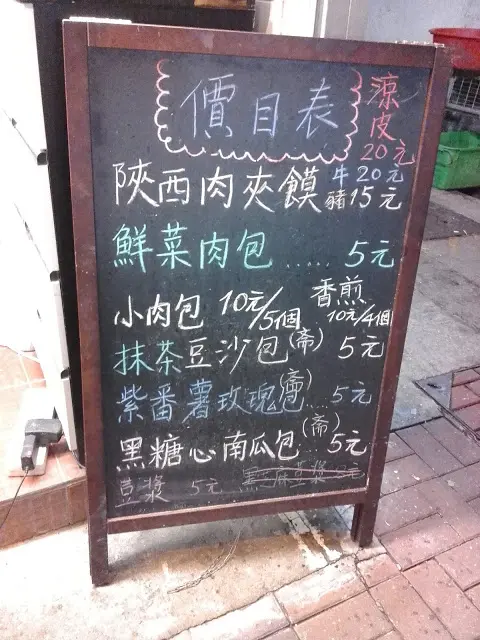 價目表
涼皮
20元
陝西肉夾饃 牛20元
豬15元
鮮菜肉包.....5元
小肉包 10元/5個 香煎 10元/4個
抹茶豆沙包(斋) 5元
紫番薯玫瑰包(斋)...5元
黑糖心南瓜包(斋) 5元
豆漿 5元